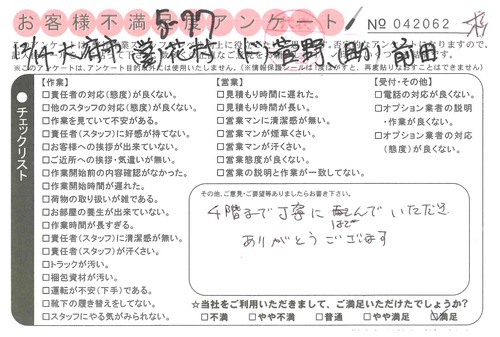 お客様不満足度アンケート
5-77
№ 042062
※このアンケートは、アンケート目的以外には使用いたしません。
チェックリスト
【作業】
□責任者の対応(態度)が良くない。
□他のスタッフの対応(態度)が良くない。
□作業を見ていて不安がある。
□責任者(スタッフ)に好感が持てない。
□お客様への挨拶が出来ていない。
□ご近所への挨拶・気遣いが無い。
□作業開始前の内容確認がなかった。
□作業開始時間が遅れた。
□荷物の取り扱いが雑である。
□お部屋の養生が出来ていない。
□作業時間が長すぎる。
□責任者(スタッフ)に清潔感が無い。
□責任者(スタッフ)が汗くさい。
□トラックが汚い。
□梱包資材が汚い。
□運転が不安(下手)である。
□靴下の履き替えをしてない。
□スタッフにやる気がみられない。
【営業】
□見積もり時間に遅れた。
□見積もり時間が長い。
□営業マンに清潔感が無い。
□営業マンが煙草くさい。
□営業マンが汗くさい。
□営業態度が良くない。
□営業の説明と作業が一致してない。
【受付・その他】
□電話の対応が良くない。
□オプション業者の説明
・作業が良くない。
□オプション業者の対応
(態度)が良くない。
その他、ご意見・ご要望等ありましたらお書き下さい。
4階まで丁寧に
はこ
んでいただき
ありがとうございます
☆当社をご利用いただきまして、ご満足いただけたでしょうか?
□不満 □やや不満 □普通 □やや満足 □満足